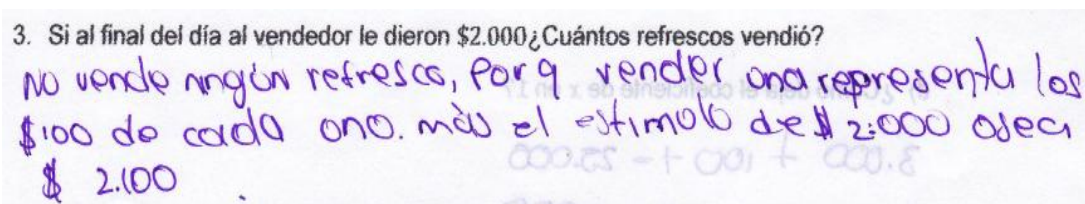 3. Si al final del día al vendedor le dieron $2.000¿Cuántos refrescos vendió?
No vende ningún refresco, porq vender una representa los
$100 de cada uno. más el estimolo de $ 2.000 osea
$ 2.100